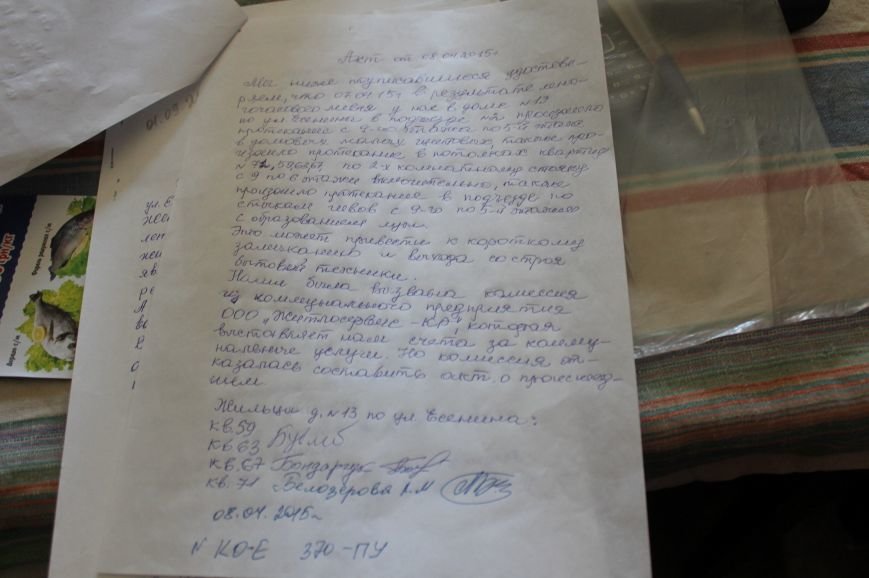 Акт от 08.04.2015г
Мы ниже подписавшиеся удостове-
ряем, что 07.04.15г в результате мно-
гочасового ливня у нас в доме №13
по ул Есенина в подъезде №4 произошло
протекание с 9-го этажа по 5-й этаж
также про-
изошло протекание в потолках квартир
№71, 59,63,67 по 2-х комнатному стояку
с 9 по 5 этажи включительно, также
произошло протекание в подъезде по
стыкам швов с 9-го по 5-й этажи
с образованием луж.
Это может привести к короткому
замыканию и выхода со строя
бытовой техники.
Нами была вызвана комиссия
из коммунального предприятия
ООО „Житлосервис-КР", которая
выставляет нам счета за комму-
нальные услуги. Но комиссия от-
казалась составить акт о происшед-
шем
Жильцы д. №13 по ул Есенина:
кв.59
кв 63
кв.67 Бондарчук
кв. 71 Белозерова А.М
08.04.2015г
№ КО-Е 370-ПУ
01.09.2
ул. Е